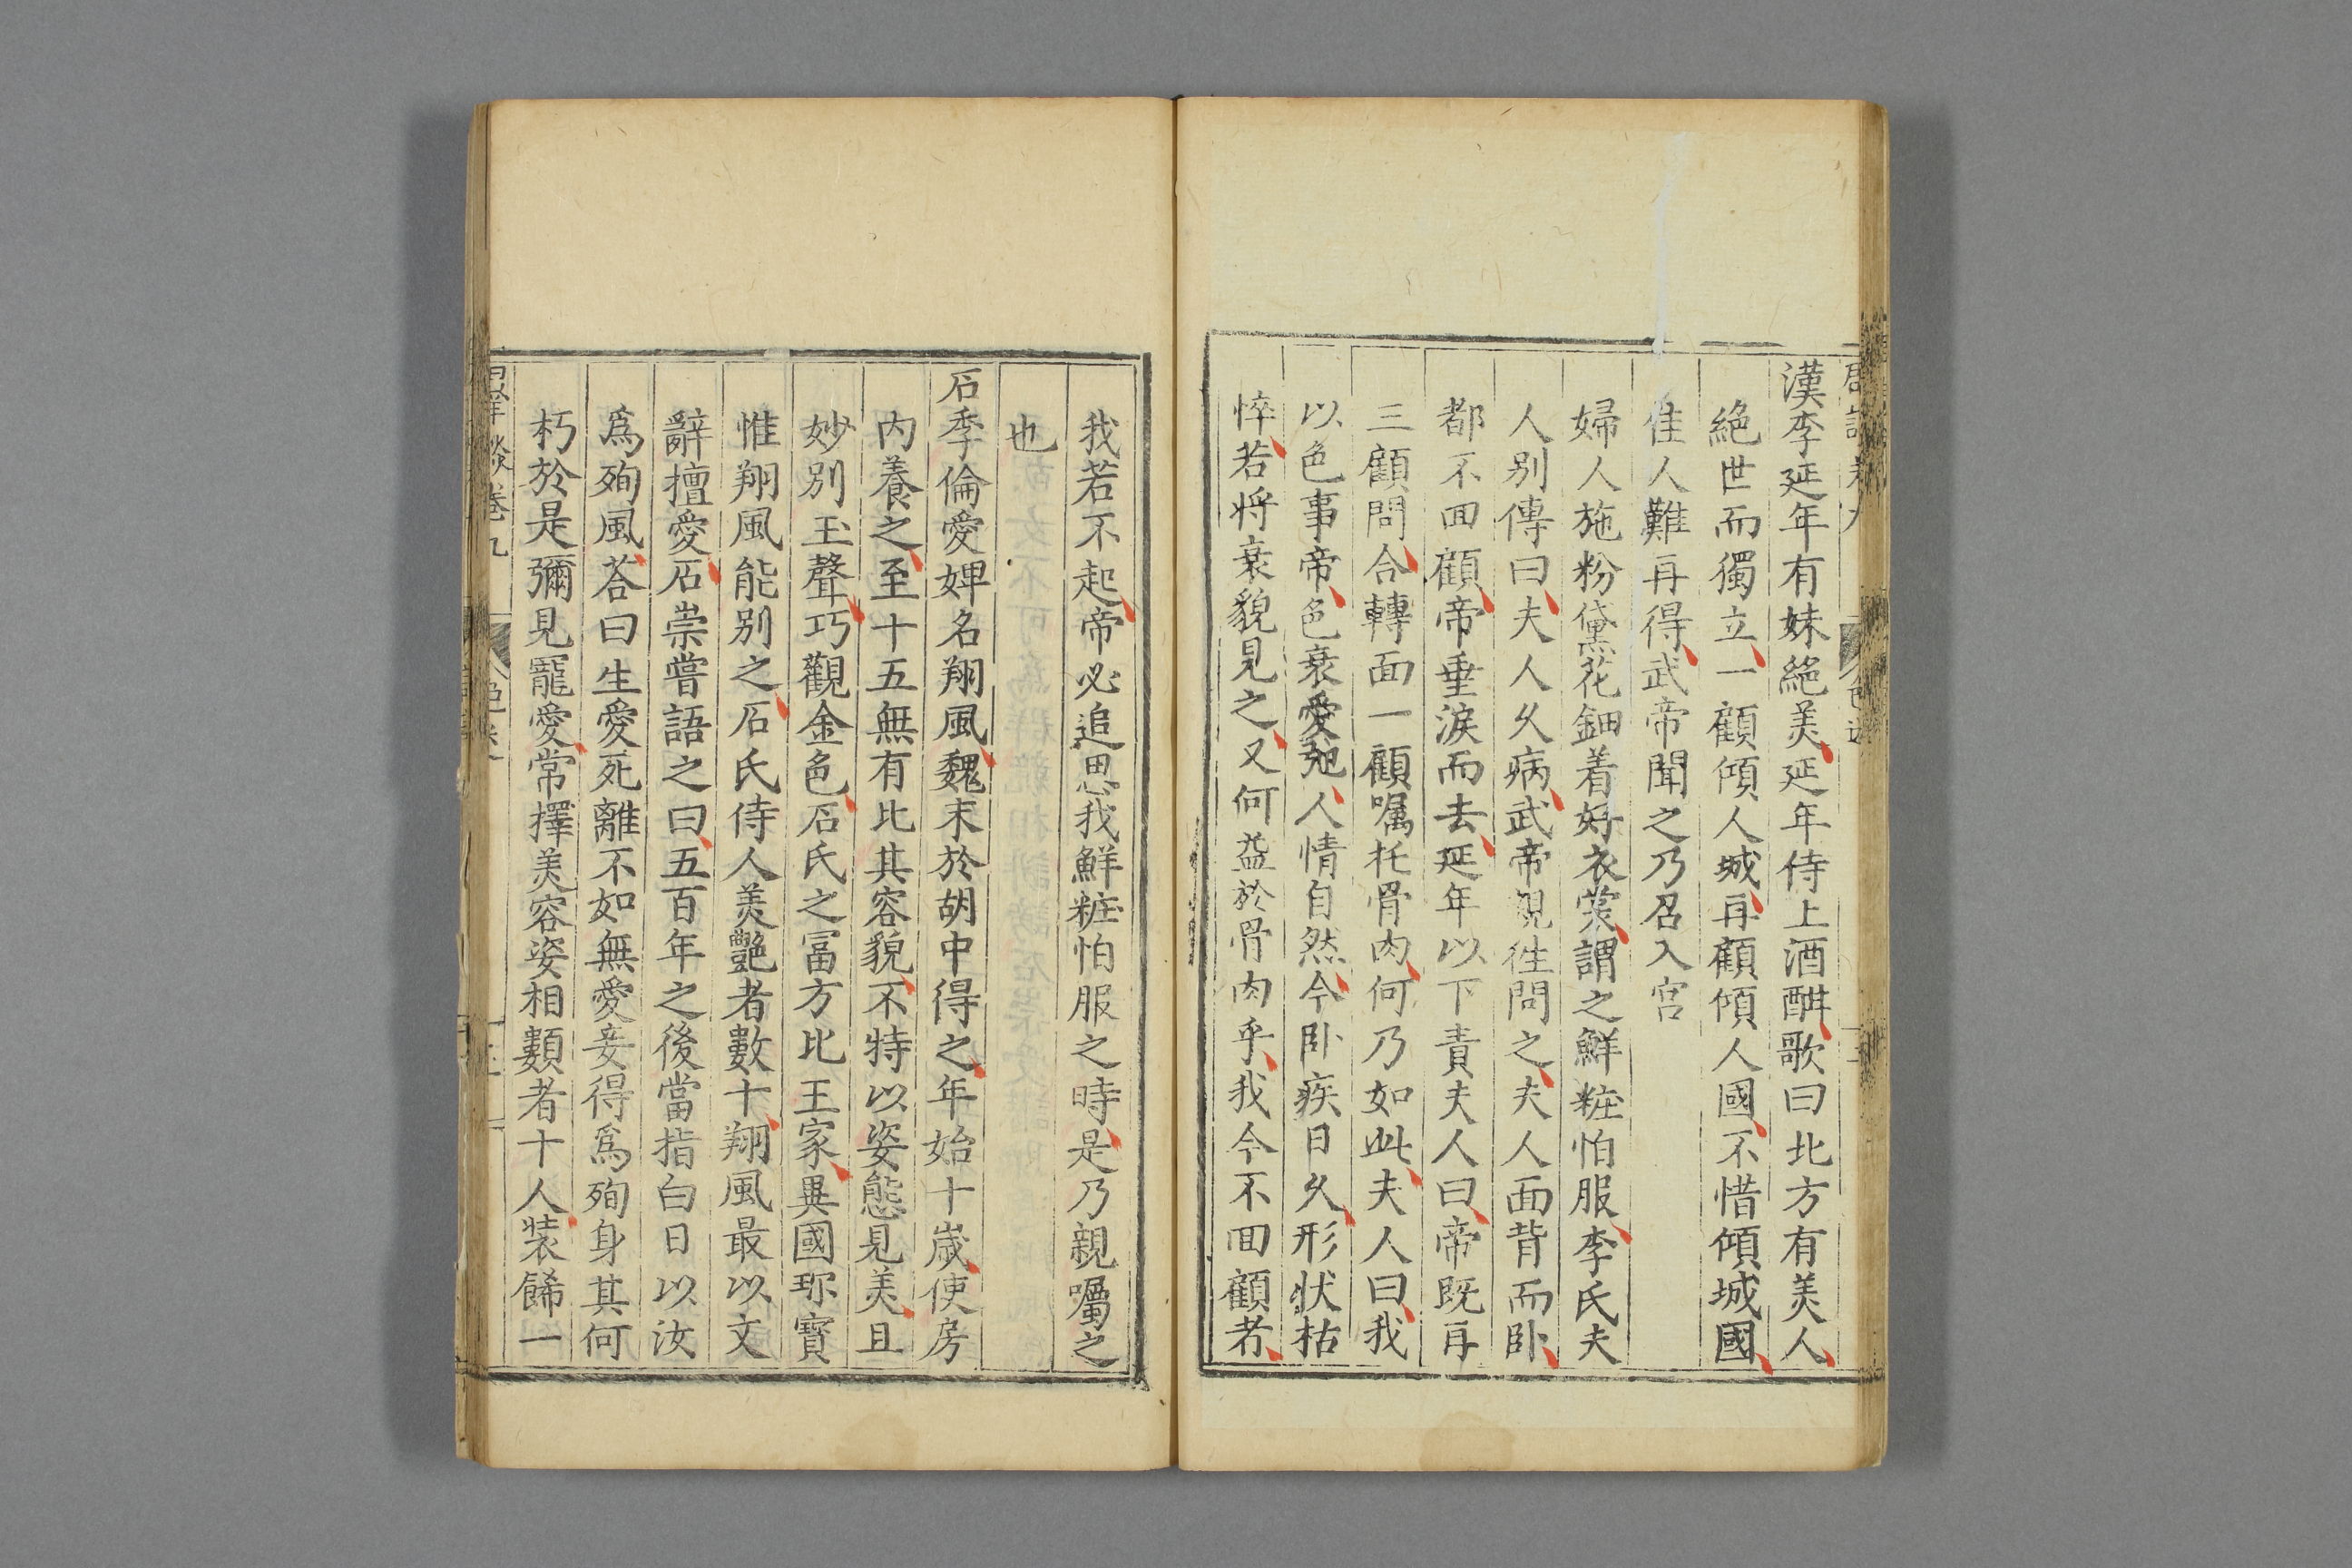 漢李延年有妹絕美延年侍上酒酣歌曰北方有美人
絕世而獨立一顧傾人城再顧傾人國不惜傾城國
佳人難再得武帝聞之乃召入宮
婦人施粉黛花鈿着好衣裳謂之鮮粧怕服李氏夫
人別傳曰夫人久病武帝親徃問之夫人面背而卧
都不囬顧帝垂淚而去延年以下責夫人曰帝既再
三顧問合轉面一顧嘱托骨肉何乃如此夫人曰我
以色事帝色衰愛弛人情自然今卧疾日久形状枯
悴若将衰貌見之又何益於骨肉乎我今不囬顧者
我若不起帝必追思我鮮粧怕服之時是乃親囑之
也
石季倫愛婢名翔風魏末於胡中得之年始十歲使房
内養之至十五無有比其容貌不特以姿態見美且
妙別玉聲巧觀金色石氏之冨方比王家異國珎寶
惟翔風能別之石氏侍人美艷者數十翔風最以文
辭擅愛石崇嘗語之曰五百年之後當指白日以汝
爲殉風荅曰生愛死離不如無愛妾得爲殉身其何
朽於是彌見寵愛常擇美容姿相類者十人装餙一
卷九